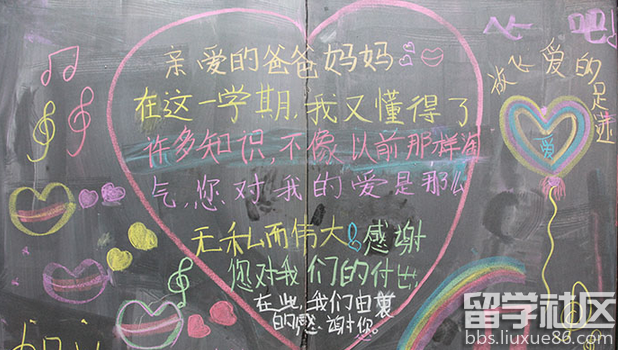 亲爱的爸爸妈妈
在这一学期,我又懂得了
许多知识,不像以前那样淘
气,您对我的爱是那么
无私而伟大,感谢
您对我们的付出,
在此,我们由衷
的感谢你。
吧
放飞爱的
足迹
爱
留学社区
bbs.liuxue86.com